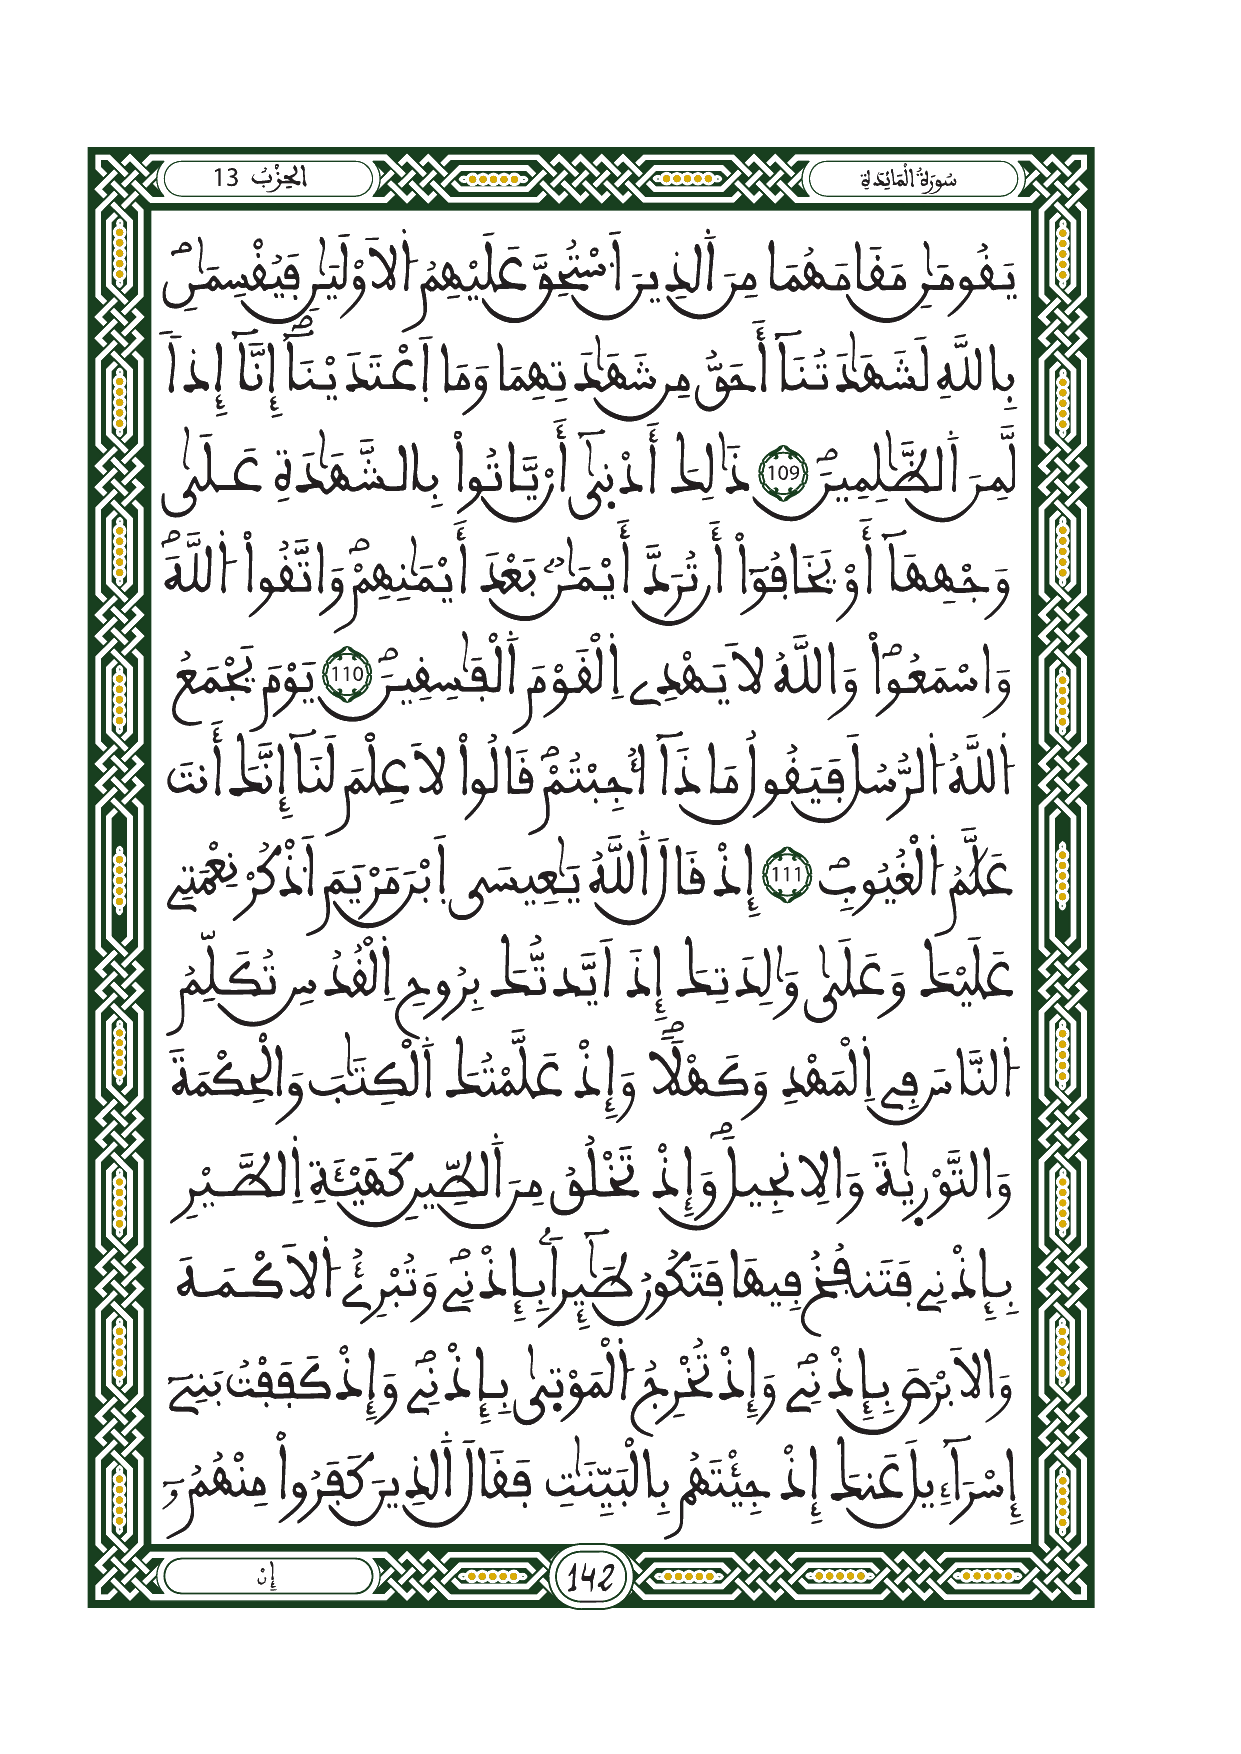 سُورَةُ الْمَائِدَةِ
الحِزْبُ 13
يَقُومَٰنِ مَقَامَهُمَا مِنَ اَ۬لذِينَ اَ۟سْتُحِقَّ عَلَيْهِمُ اُ۬لَاوْلَيَٰنِ فَيُقْسِمَٰنِ
بِاللَّهِ لَشَهَٰدَتُنَآ أَحَقُّ مِن شَهَٰدَتِهِمَا وَمَا اَ۪عْتَدَيْنَآۖ إِنَّآ إِذاٗ
لَّمِنَ اَ۬لظَّٰلِمِينَۖ 109 ذَٰلِكَ أَدْن۪يٰٓ أَنْ يَّاتُواْ بِالشَّهَٰدَةِ عَلَىٰ
وَجْهِهَآ أَوْ يَخَافُوٓاْ أَن تُرَدَّ أَيْمَٰنُۢ بَعْدَ أَيْمَٰنِهِمْۖ وَاتَّقُواْ اُ۬للَّهَۖ
وَاسْمَعُواْۖ وَاللَّهُ لَا يَهْدِے اِ۬لْقَوْمَ اَ۬لْفَٰسِقِينَۖ 110 يَوْمَ يَجْمَعُ
اُ۬للَّهُ اُ۬لرُّسُلَ فَيَقُولُ مَاذَآ أُجِبْتُمْۖ قَالُواْ لَا عِلْمَ لَنَآ إِنَّكَ أَنتَ
عَلَّٰمُ اُ۬لْغُيُوبِۖ 111 إِذْ قَالَ اَ۬للَّهُ يَٰعِيسَى اَ۪بْنَ مَرْيَمَ اَ۟ذْكُرْ نِعْمَتِے
عَلَيْكَ وَعَلَىٰ وَٰلِدَتِكَ إِذَ اَيَّدتُّكَ بِرُوحِ اِ۬لْقُدُسِ تُكَلِّمُ
اُ۬لنَّاسَ فِے اِ۬لْمَهْدِ وَكَهْلاٗۖ وَإِذْ عَلَّمْتُكَ اَ۬لْكِتَٰبَ وَالْحِكْمَةَ
وَالتَّوْر۪يٰةَ وَالِانجِيلَۖ وَإِذْ تَخْلُقُ مِنَ اَ۬لطِّينِ كَهَيْـَٔةِ اِ۬لطَّيْرِ
بِإِذْنِے فَتَنفُخُ فِيهَا فَتَكُونُ طَٰٓئِراَۢ بِإِذْنِےۖ وَتُبْرِۓُ اُ۬لَاكْمَهَ
وَالَابْرَصَ بِإِذْنِےۖ وَإِذْ تُخْرِجُ اُ۬لْمَوْت۪يٰ بِإِذْنِےۖ وَإِذْ كَفَفْتُ بَنِےٓ
إِسْرَآءِيلَ عَنكَ إِذْ جِئْتَهُم بِالْبَيِّنَٰتِ فَقَالَ اَ۬لذِينَ كَفَرُواْ مِنْهُمُۥٓ
إِنْ
142